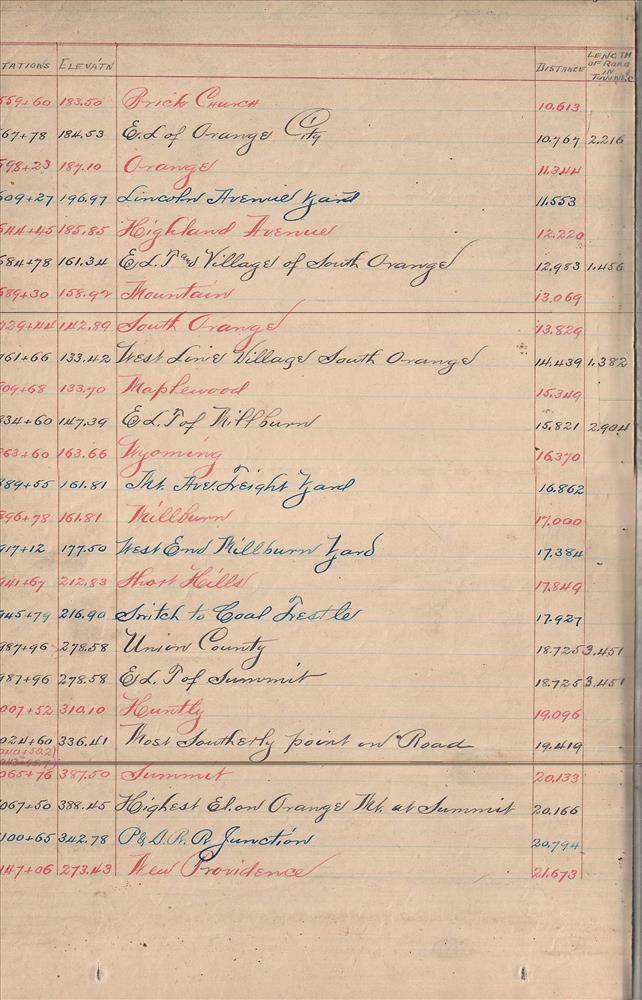 TATIONS ELEVAT'N DISTANCE LENGTH OF ROAD IN TOWNS &C
559+60 183.50 Brick Church 10.613
67+78 184.53 E.L of Orange City 10.767 2.216
598+23 187.10 Orange 11.344
609+27 196.97 Lincoln Avenue Yard 11.553
644+45 185.85 Highland Avenue 12.220
684+78 161.34 E.L. T and Village of South Orange 12.983 1.456
689+30 158.92 Mountain 13.069
729+44 142.89 South Orange 13.829
761+66 133.42 West Line Village South Orange 14.439 1.382
809+68 133.70 Maplewood 15.349
834+60 147.39 E.L. T of Millburn 15.821 2.904
863+60 163.66 Wyoming 16.370
889+55 161.81 Mt. Ave. Freight Yard 16.862
896+78 161.81 Millburn 17.000
917+12 177.50 West End Millburn Yard 17.384
941+67 212.83 Short Hills 17.849
945+79 216.90 Switch to Coal Trestle 17.927
987+96 278.58 Union County 18.725 3.451
987+96 278.58 E.L. T of Summit 18.725 3.451
007+52 310.10 Huntly 19.096
024+60 336.41 Most Southerly point on Road 19.419
065+76 387.50 Summit 20.133
067+50 388.45 Highest El. on Orange Mt. at Summit 20.166
100+65 342.78 P & D. R. R Junction 20.794
147+06 273.43 New Providence 21.673